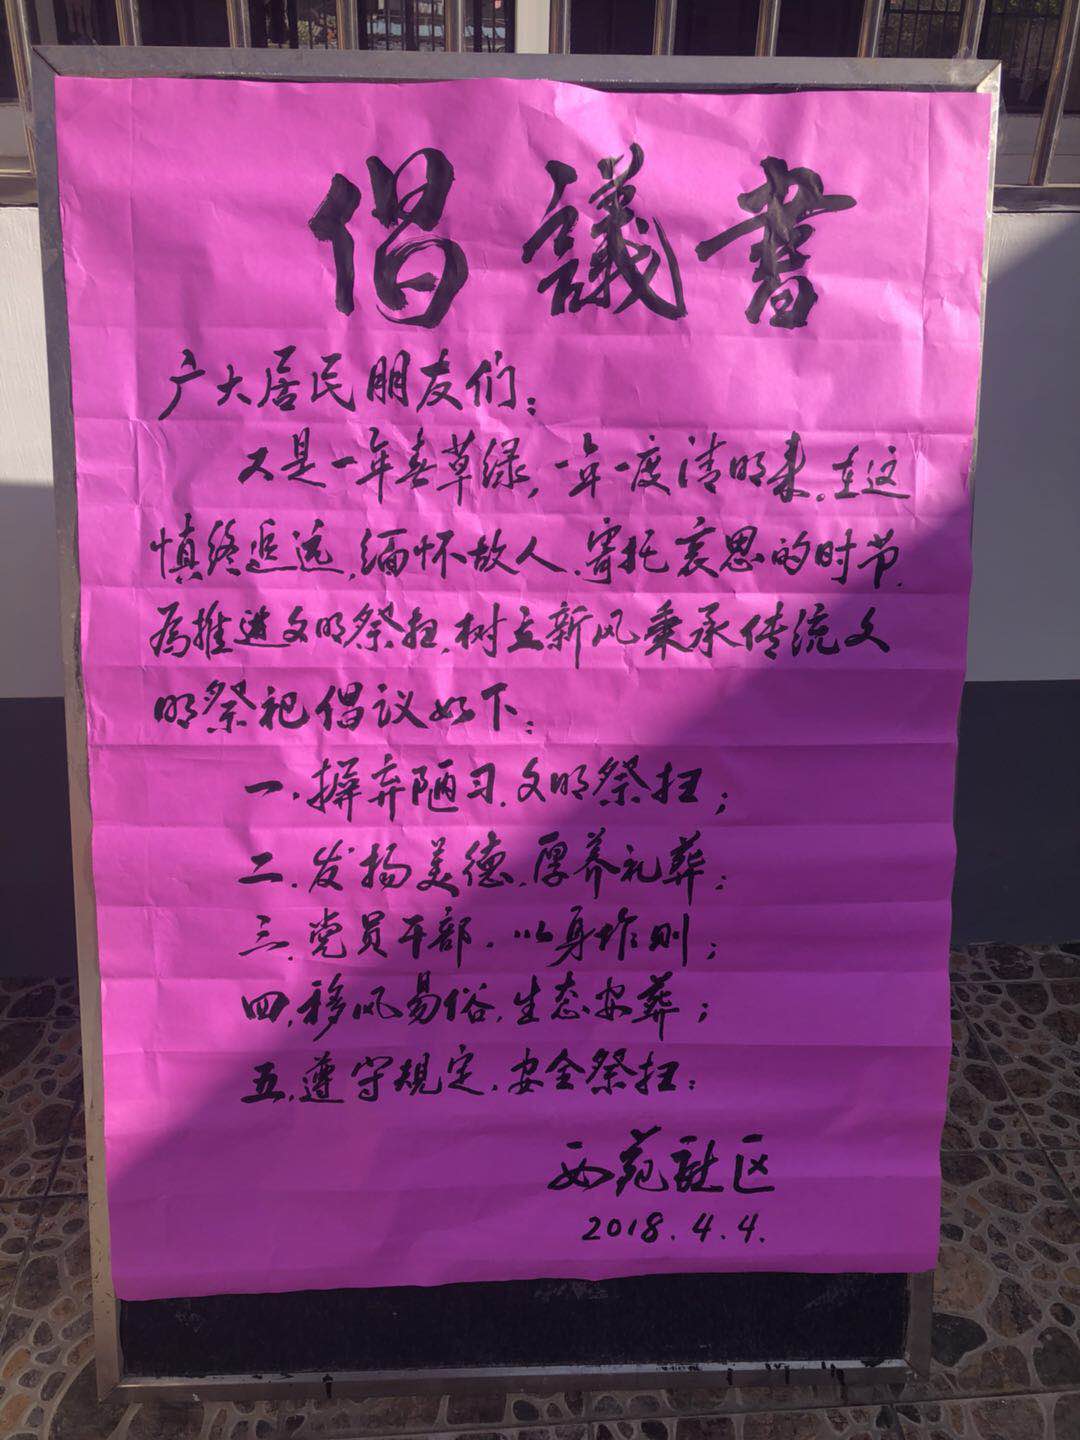 倡議書
广大居民朋友们：
又是一年春草绿，一年一度清明来，在这
慎终追远，缅怀故人，寄托哀思的时节，
为推进文明祭扫，树立新风秉承传统文
明祭祀倡议如下：
一、摒弃陋习，文明祭扫；
二、发扬美德，厚养礼葬；
三、党员干部，以身作则；
四、移风易俗，生态安葬；
五、遵守规定，安全祭扫：
西苑社区
2018.4.4.